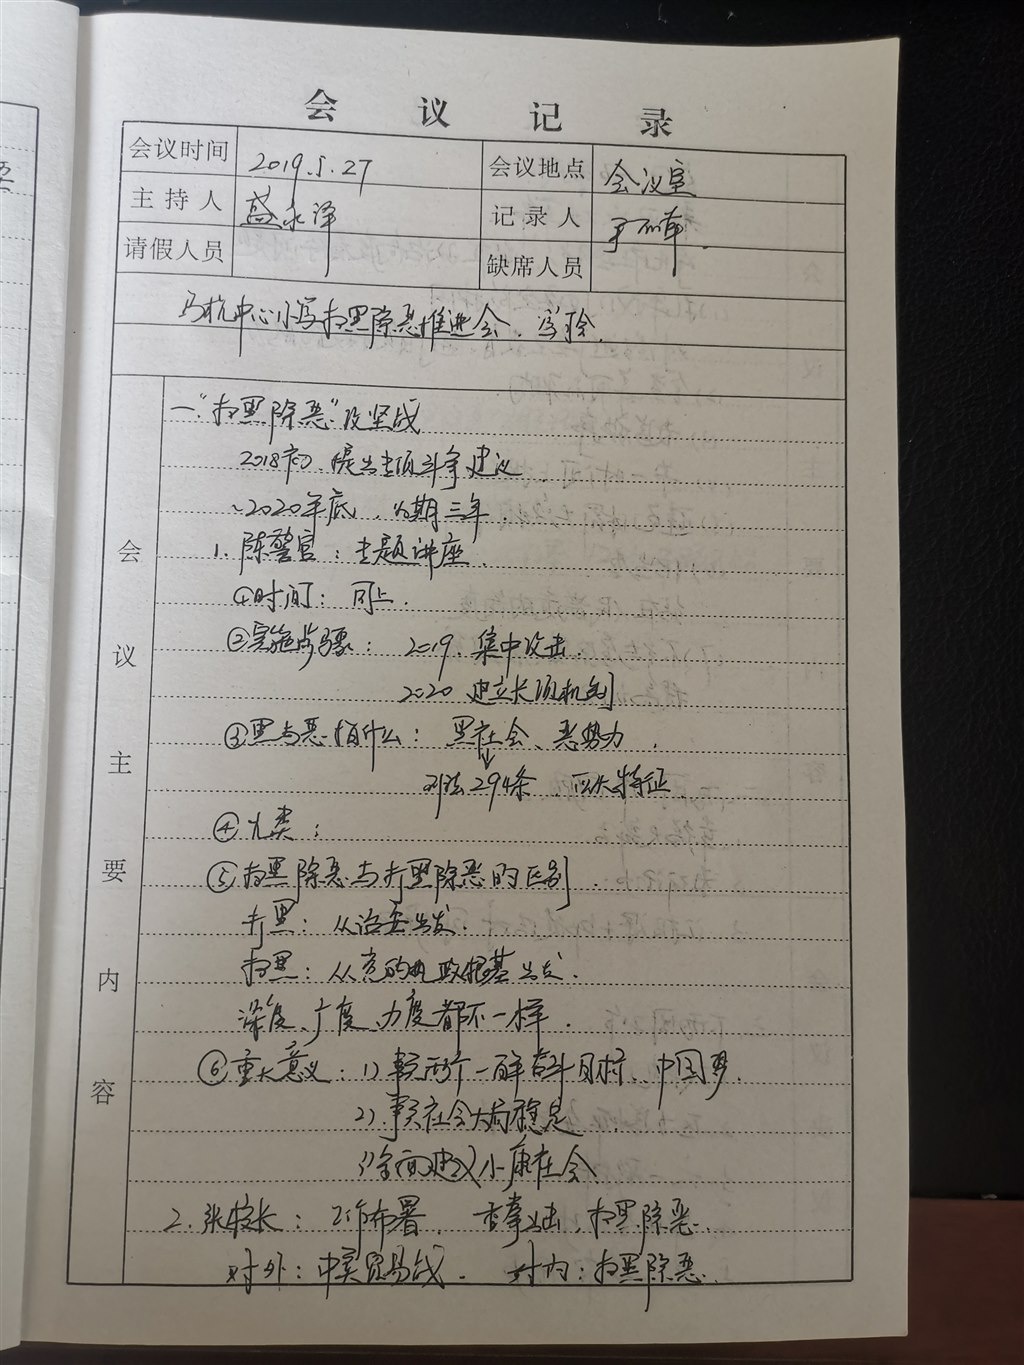 会议记录
会议时间 2019.5.27 会议地点 会议室
主持人 盛永泽 记录人
请假人员 缺席人员
马杭中心小学扫黑除恶推进会、
一."扫黑除恶"攻坚战
2018初、提出专项斗争建议
~2020年底，为期三年
1. 陈警官：主题讲座.
①时间：同上.
②实施步骤：2019、集中攻击.
2020 建立长项机制
③黑与恶指什么：黑社会、恶势力.
↓
刑法294条. 四大特征
④九类：
⑤扫黑除恶与打黑除恶的区别.
打黑：从治安出发.
扫黑：从党的执政根基出发.
深度、广度、力度都不一样.
⑥重大意义：1) 事关两个一百年奋斗目标、中国梦.
2) 事关社会大局稳定
(全面建设小康社会
2. 张校长：工作布署. 重拳出击，扫黑除恶.
对外：中美贸易战. 对内：扫黑除恶.
会议主要内容